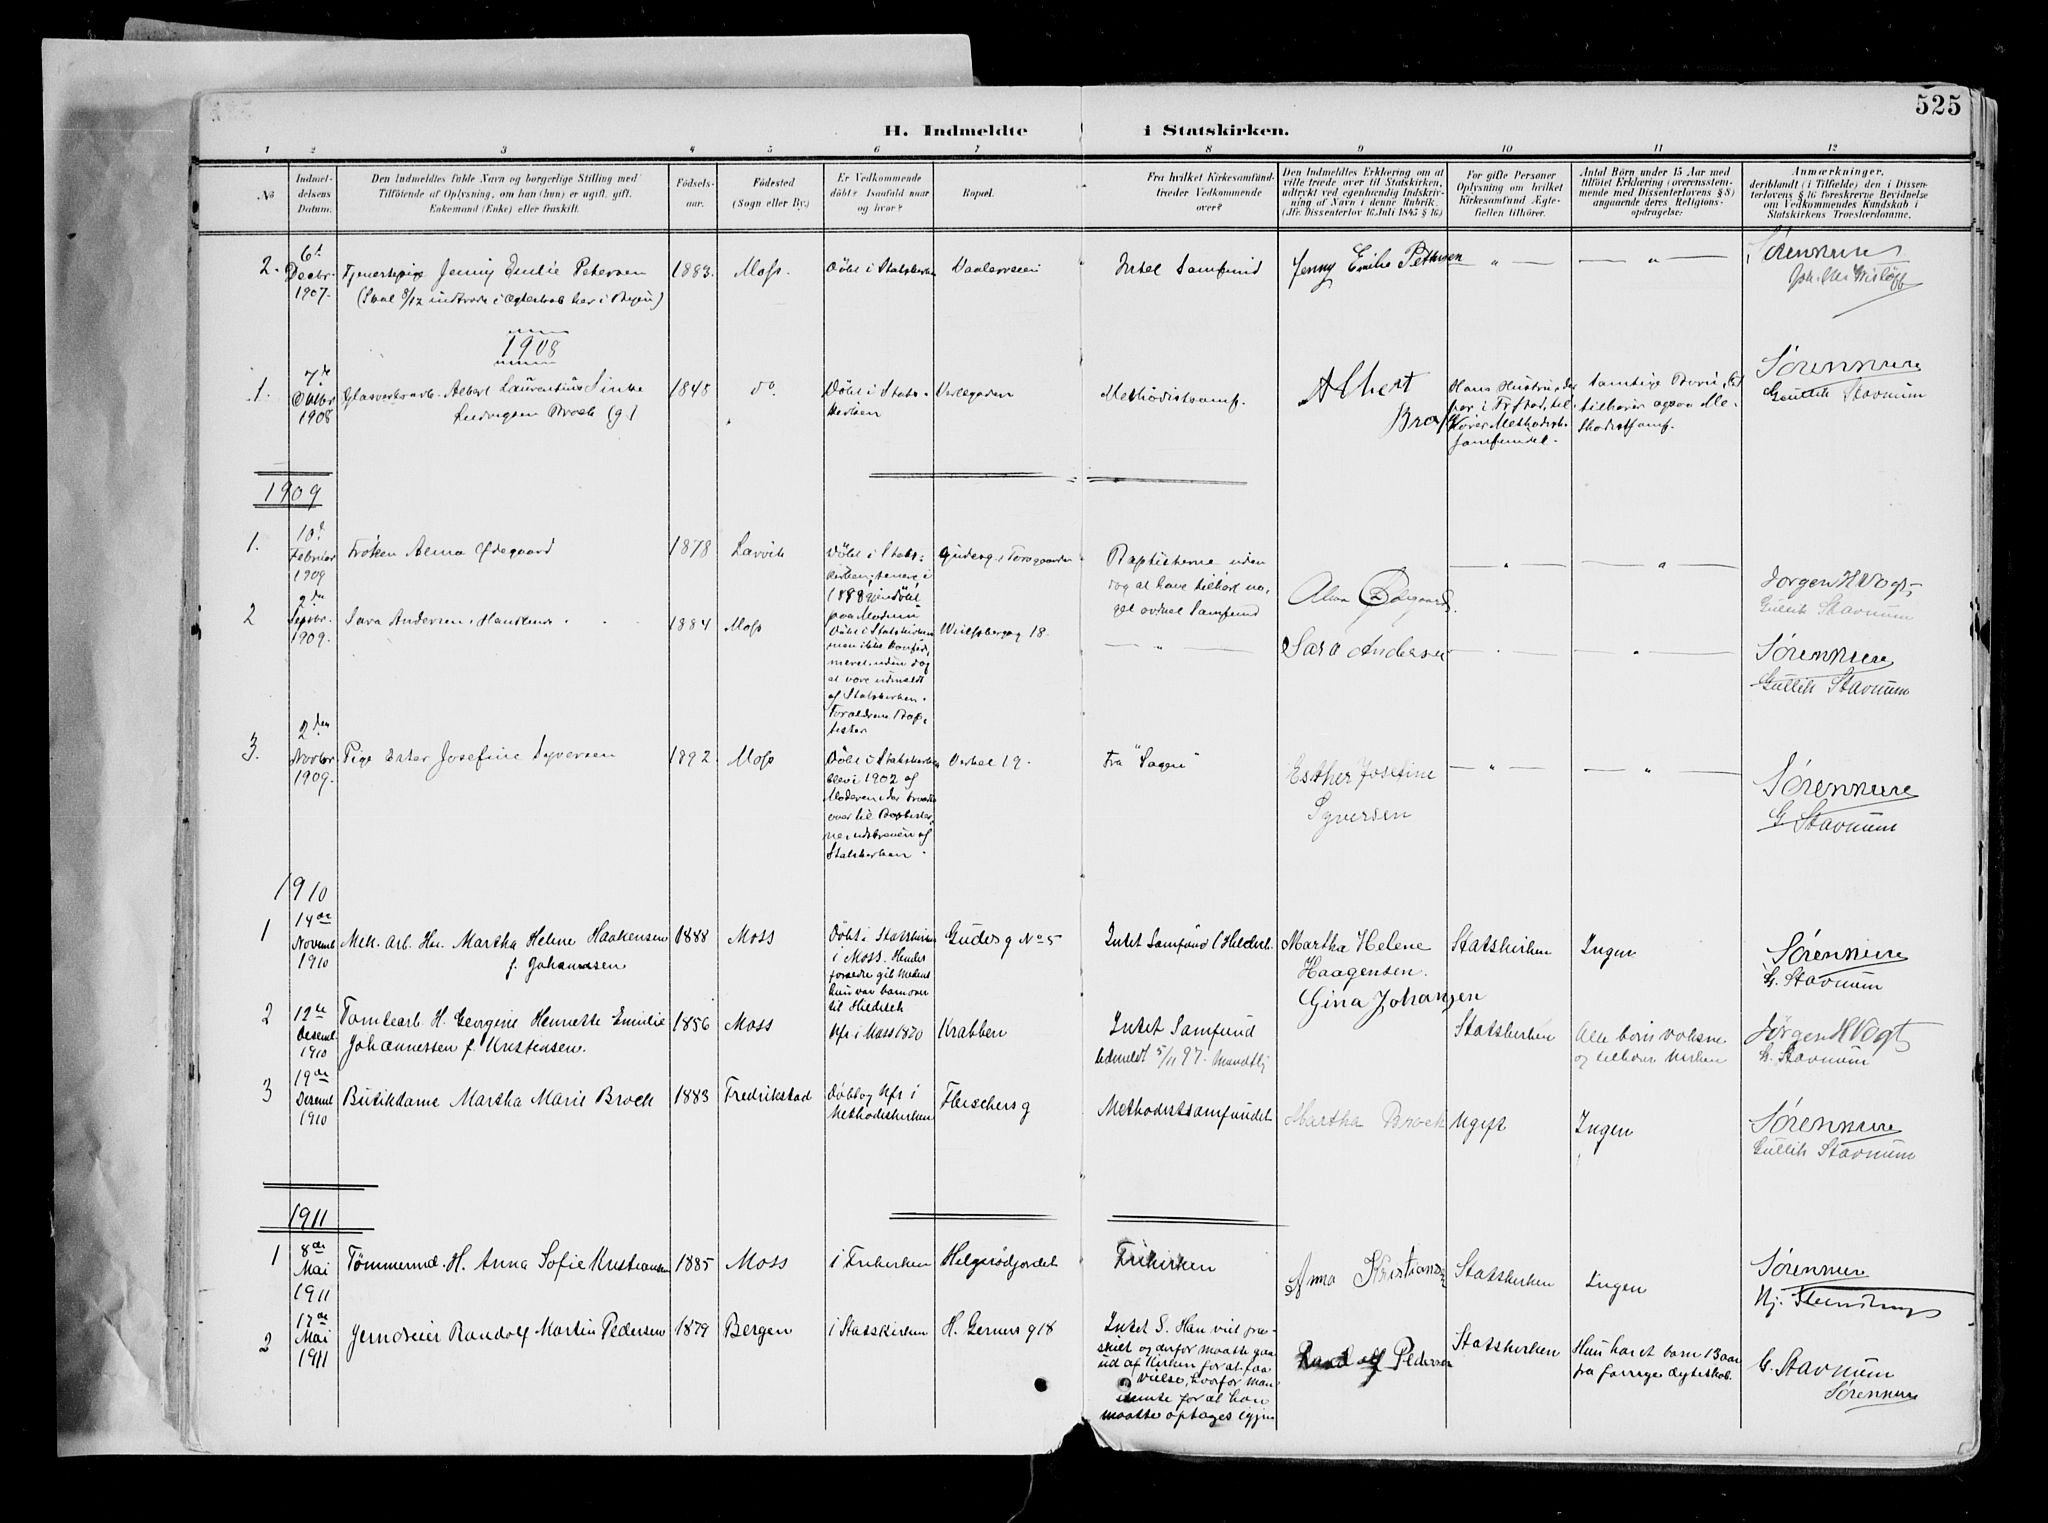 525
H. Indmeldte i Statskirken.
1 2 3 4 5 6 7 8 9 10 11 12
No
Indmel-
delsens
Datum.
Den Indmeldtes fulde Navn og borgerlige Stilling med
Tilføiende af Oplysning, om han (hun) er ugift, gift,
Enkemand (Enke) eller fraskilt.
Fødsels-
aar.
Fødested
(Sogn eller By.)
Er Vedkommende
døbt? Isaafald naar
og hvor?
Bopæl.
Fra hvilket Kirkesamfund-
træder Vedkommende
over?
Den Indmeldtes Erklæring om at
ville træde over til Statskirken,
udtrykt ved egenhændig Indskriv-
ning af Navn i denne Rubrik.
(Jfr. Dissenterlov 16 Juli 1845 § 16.)
For gifte Personer
Oplysning om hvilket
Kirkesamfund Ægte-
fællen tilhører.
Antal Børn under 15 Aar med
tilføiet Erklæring (overensstem-
mende med Dissenterlovens § 8)
angaaende deres Religions-
opdragelse:
Anmærkninger,
deriblandt (i Tilfælde) den i Dissen-
terlovens § 16 foreskrevne Bevidnelse
om Vedkommendes Kundskab i
Statskirkens Troeslærdomme.
2. 6t Decbr. 1907. Tjenestepige Jenny Emilie Petersen
1883. Moss. Døbt i Statskirken
Intet Samfund Jenny Emilie Pettersen — " — — " — Sørensen
1908
1. 7de Oktbr 1908 Glasverksarb. Albert Laurentius
Ludvigsen Brock (g.)
1848 do Døbt i Stats-
kirken
Værlegaden Methodistsamf. Albert
Hans Hustru, der
bor i Frstad, til-
hører Methodist-
samfundet.
Samtlige Børn
tilhører ogsaa Me-
thodistsamf.
Sørensen
Gullik Stavnum
1909
1. 10d Februar 1909 Frøken Alma Ødegaard 1878 Larvik
Døbt i Stats-
kirken, senere i
1888 gjendøbt
paa Modum
Baptisterne uden
dog at have tilhørt no-
get andet Samfund
Alma Ødegaard. " "
Jørgen H Vogt,
Gullik Stavnum
2 2den Septbr. 1909. Sara Andersen, Handlende 1884 Moss
Døbt i Statskirken
men ikke konfir-
meret, uden dog
at være udmeldt
af Statskirken.
Forældrene Bap-
tister
18. — " — Sara Andersen " "
Sørensen
Gullik Stavnum
3. 2den Novbr 1909. Pige Ester Josefine Syversen 1892. Moss
Døbt i Statskirken
blev i 1902 af
Moderen, der traadte
over til Baptister-
ne, udskreven af
Statskirken.
Værket 19. Fra "Sagen"
Esther Josefine
Syversen
— " — — " —
Sørensen
G Stavnum
1910
1 14de Novembr 1910 Mek. Arb. Hu. Martha Helene Haakensen
f. Johannsen
1888 Moss Døbt i Statskirken
i Moss. Hendes
forældre gik medens
hun var barn over
til Hildech
Gudesg No 5 Intet Samfund (Hildeck.
Martha Helene
Haagensen.
Statskirken Ingen
Sørensen
G. Stavnum
2 12te Desembr 1910 Tomtearb. H. Georgine Henriette Emilie
Johannessen f. Kristensen.
1856 Moss Kfr i Moss 1870 Krabben
Intet Samfund
Udmeldt 5/11 97. Mundtlig
Gina Johansen
Statskirken
Alle børn voksne
og tilhører Kirken
Jørgen H Vogt
G. Stavnum
3 19de Desembr 1910 Butikdame Martha Marie Brock 1883 Fredrikstad
Døbt og Kfr i
Methodistkirken
Fleischersg Methodistsamfundet Martha Brock Ugift Ingen
Sørensen
Gullik Stavnum
1911
1 8de Mai 1911 Tømmermd. H. Anna Sofie Kristiansen 1885 Moss i Frikirken Helgerødjordet
Frikirken Anna Kristiansen Statskirken Ingen Sørensen
2 17de Mai 1911 Jerndreier Randolf Martin Pedersen 1879 Bergen i Statskirken H. Gerners g 18
Intet S. Han vilt fra-
skilt og derfor maatte gaa
ud af Kirken for at faa
vielse, hvorfor man
for at han
maatte optages igjen
Randolf Pedersen Statskirken
Hun har et barn 13 aar
fra forrige ægteskab.
G. Stavnum
Sørensen